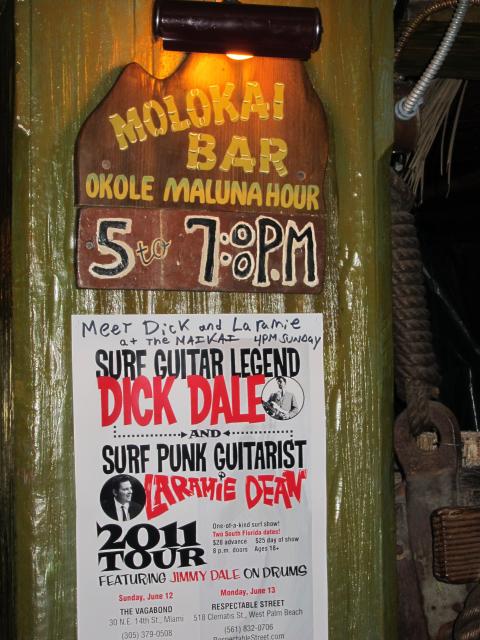 MOLOKAI
BAR
OKOLE MALUNA HOUR
5 to 7:00 P.M
Meet Dick and Laramie
at the MAIKAI 4PM SUNDAY
SURF GUITAR LEGEND
DICK DALE
AND
SURF PUNK GUITARIST
LARAMIE DEAN
2011
TOUR
One-of-a-kind surf show!
Two South Florida dates!
$20 advance $25 day of show
8 p.m. doors Ages 18+
FEATURING JIMMY DALE ON DRUMS
Sunday, June 12
THE VAGABOND
30 N.E. 14th St., Miami
(305) 379-0508
Monday, June 13
RESPECTABLE STREET
518 Clematis St., West Palm Beach
(561) 832-0706
RespectableStreet.com